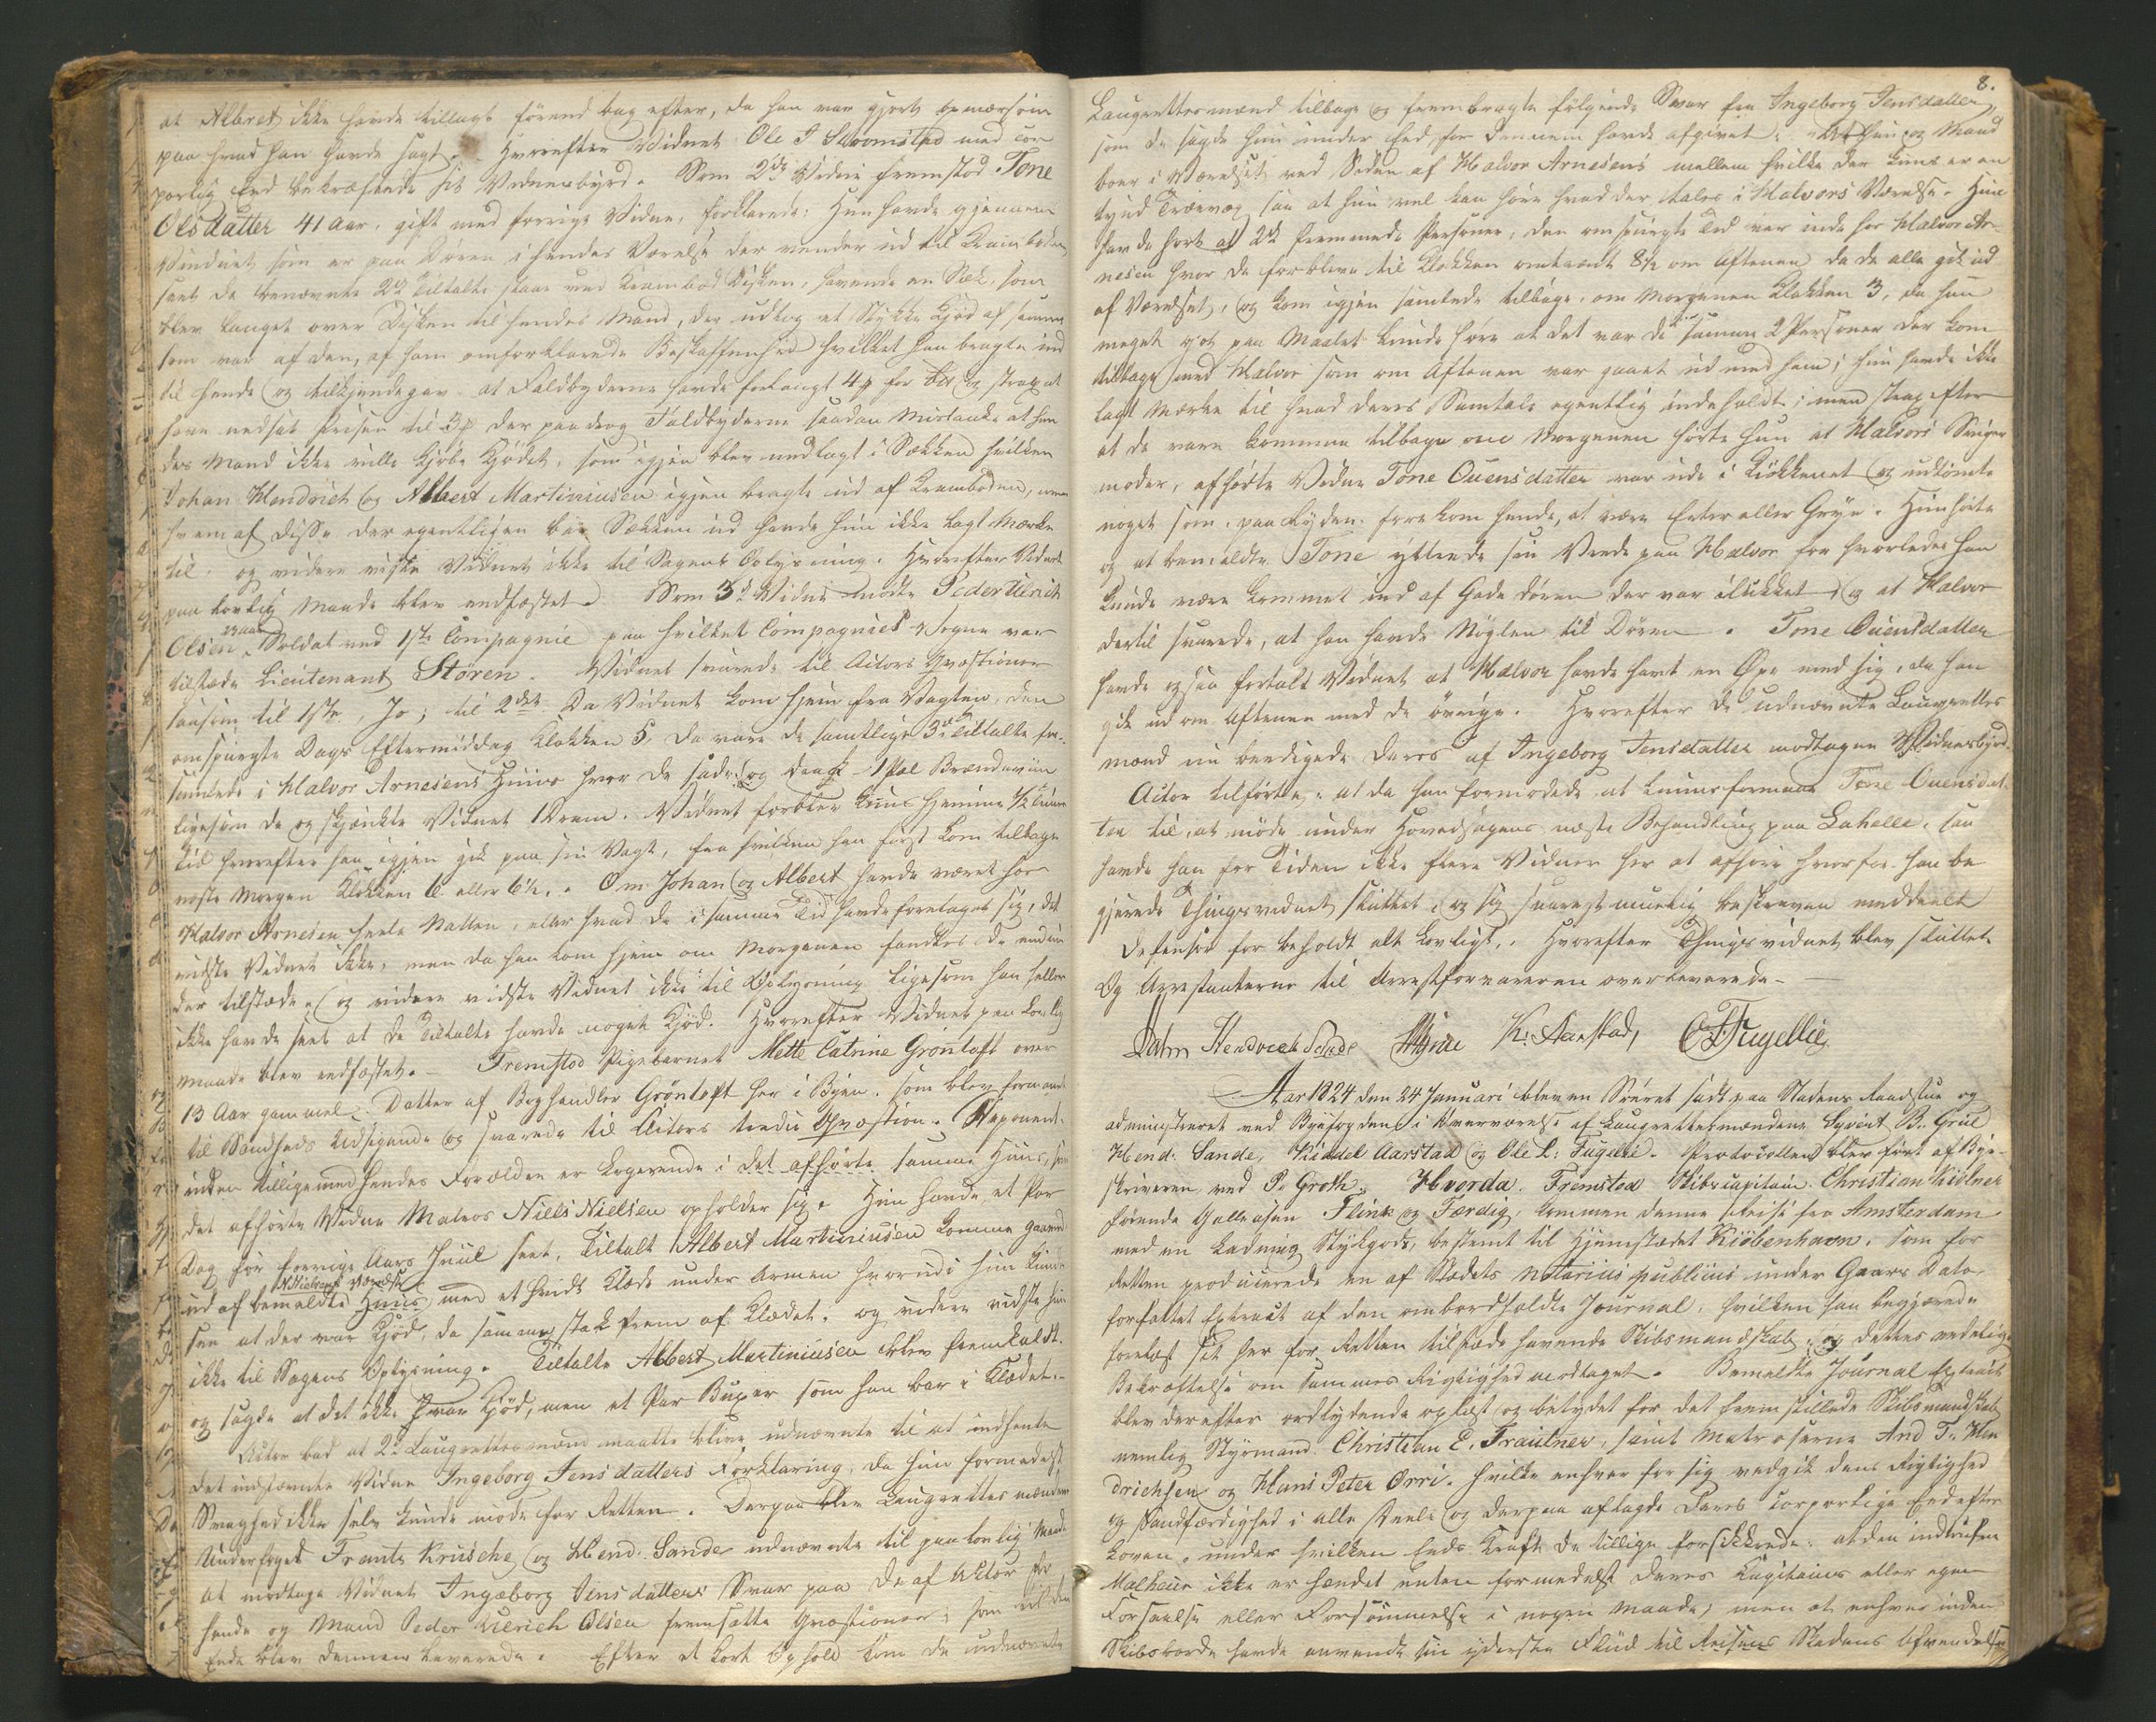 at Albret ikke havde tillagt førend bag efter, da han var gjort opmærsom
paa hvad han havde sagt. Hvorefter Vidnet Ole J Stromsted med cor
porlig Eed bekræftede sit Vidnesbyrd. Som 2det Vidne fremstod Tone
Olsdatter 41 Aar, gift med forrige Vidne, forklarede: Hun havde gjennem
Vinduet som er paa Døren i hendes Værelse der vender ud til Kramboden
seet de benævnte 2de Tiltalte staae ved Krambod Disken, havende en Sæk, som
blev langet over Disken til hendes Mand, der udtog et Stykke Kjød af samme
som var af den, af ham omforklarede Beskaffenhed hvilket han bragte ind
til hende og tilkjendegav at Faldbyderne havde forlangt 4 for det og strax at
have nedsat Prisen til 3 der paadrog Faldbyderne saadan Mistanke at hen
des Mand ikke vilde kjøbe Kjødet, som igjen blev nedlagt i Sækken hvilken
Johan Hendrich og Albert Martiniusen igjen bragte ud af Kramboden, men
hvem af disse der egentligen bar Sækken ud havde hun ikke lagt Mærke
til og videre vidste Vidnet ikke til Sagens Oplysning. Hvorefter Vidnet
paa lovlig Maade blev eedfæstet. Som 3de Vidne mødte Peder Ulrich
Olsen 23 aar Soldat ved 1ste Compagnie paa hvilket Compagnies Vegne var
tilstæde Lieutenant Støren. Vidnet svarede til Actors Qvæstioner
saasom til 1ste, Jo; til 2det Da Vidnet kom hjem fra Vagten, den
omspurgte Dags Eftermiddag Klokken 5, da vare de samtlige 3de Tiltalte for
samlede i Halvor Arnesens Huus hvor de sade og drak 1 Pæl Brændeviin
ligesom de og skjænkte Vidnet 1 Dram. Vidnet forblev kuns hjemme ½ Times
Tid hvorefter han igjen gik paa sin Vagt, fra hvilken han først kom tilbage
næste Morgen Klokken 6 eller 6½. Om Johan og Albert havde været hos
Halvor Arnesen heele Natten, eller hvad de i samme Tid havde foretaget sig, det
vidste Vidnet ikke, men da han kom hjem om Morgenen fandtes de endnu
der tilstæde og videre vidste Vidnet ikke til Oplysning ligesom han heller
ikke havde seet at de Tiltalte havde noget Kjød. Hvorefter Vidnet paa lovlig
Maade blev eedfæstet. Fremstod Pigebarnet Mette Catrine Grøntoft over
13 Aar gammel, Datter af Boghandler Grøntoft her i Byen, som blev formanet
til Sandheds Udsigende og svarede til Actors tredie Qvæstion. Deponent
inden tilligemed hendes Forældre er logerende i det afhørte samme Huus, som
det afhørte Vidne Matros Niels Nielsen opholder sig. Hun havde et Par
Dag før forrige Aars Juul seet, Tiltalt Albert Martiniusen komme gaaende
ud af bemeldte N. Nielsens Værelse Huus med et hvidt Klæde under Armen hvorudi hun kunde
see at der var Kjød, da samme stak frem af Klædet, og videre vidste hun
ikke til Sagens Oplysning. Tiltalte Albert Martiniusen blev fremkaldt
og sagde at det ikke var Kjød, men et Par Buxer som han bar i Klædet.
Actor bad at 2de Laugrettesmænd maatte blive udnævnte til at indhente
det indstævnte Vidne Ingeborg Jensdatters Forklaring, da hun formedelst
Svaghed ikke selv kunde møde for Retten. Derpaa blev Laugrettesmændene
Underfoget Frantz Krusche og Hend. Sande udnævnte til paa lovlig Maade
at modtage Vidnet Ingeborg Jensdatters Svar paa de af Actor for
hende og Mand Peder Ulrich Olsen fremsatte Qvæstioner, som til den
Ende blev dennem leverede. Efter et kort Ophold kom de udnævnte
8.
Laugrettesmænd tilbage og frembragte følgende Svar fra Ingeborg Jensdatter,
som de sagde hun under Eed for dennem havde afgivet: at hun og Mand
boer i Værelset ved Siden af Halvor Arnesens mellem hvilke der kuns er en
tynd Trævæg saa at hun vel kan høre hvad der tales i Halvors Værelse. Hun
havde hørt at 2de fremmede Personer, den omspurgte Tid var inde hos Halvor Ar
nesen hvor de forbleve til Klokken omtrent 8½ om Aftenen da de alle gik ud
af Værelset, og kom igjen samlede tilbage, om Morgenen Klokken 3, da hun
meget got paa Maalet kunde høre at det var de samme 2 Personer der kom
tilbage med Halvor som om Aftenen var gaaet ud med ham; hun havde ikke
lagt Mærke til hvad deres Samtale egentlig indeholdt; men strax efter
at de vare kommen tilbage om Morgenen hørte hun at Halvors Sviger
moder, afhørte Vidne Tone Ouensdatter var ude i Kjøkkenet og udtømte
noget som, paa Lyden, forekom hende, at være Erter eller Gryn. Hun hørte
og at bemeldte Tone yttrede sin Vrede paa Halvor for hvorledes han
kunde være kommet ind af Gade døren der var tillukket og at Halvor
dertil svarede, at han havde Nøglen til Døren. Tone Ouensdatter
havde ogsaa fortalt Vidnet at Halvor havde havt en Øxe med sig, da han
gik ud om Aftenen med de øvrige. Hvorefter de udnævnte Laugrettes
mænd nu beedigede deres af Ingeborg Jensdatter modtagne Vidnesbyrd.
Actor tilførte: at da han formodede at kunne formaae Tone Ouensdat
ter til, at møde under Hovedsagens næste Behandling paa Lahelle, saa
havde han for Tiden ikke flere Vidner her at afhøre hvorfor han be
gjerede Thingsvidnet sluttet, og sig snarest muelig beskreven meddeelt
Defensor forbeholdt alt Lovligt. Hvorefter Thingsvidnet blev sluttet
Og Arrestanterne til Arrestforvareren overleverede-
Hendrich Sande K: Aarstad, O F Fugellie
Aar 1824 den 24 Januari blev en Søeret sadt paa Stadens Raadstue og
administreret ved Byefogden i Overværelse af Laugrettesmændene Syvert B. Grul
Hend: Sande, Kiddel Aarstad og Ole L: Fugelie. Protocollen blev ført af Bye-
skriveren ved P. Groth. Hvorda Fremstod Skibscapitain Christian Kiölner
førende Galleasen Flink og Færdig, kommen denne Reise fra Amsterdam
med en Ladning Stykgods, bestemt til Hjemstædet Kiöbenhavn, som for
Retten producerede en af Stædets Notarius publicus under Gaars Dato
forfattet Extract af den ombordholdte Journal, hvilken han begjærede
forelæst sit her for Retten tilstæde havende Skibsmandskab, og dettes eedelige
Bekræftelse om sammes Rigtighed modtaget. Bemeldte Journal Extract
blev derefter ordlydende oplæst og betydet for det fremstillede Skibsmandskab
nemlig Styrmand Christian E. Trautner, samt Matroserne And T. Hen
drichsen og Hans Peter Orri. hvilke enhver for sig vedgik dens Rigtighed
og Sandfærdighed i alle Deele og derpaa aflagde deres corporlige Eed efter
Loven, under hvilken Eeds Kraft de tillige forsikkrede: at den indtrufne
Malheur ikke er hændet enten formedelst deres Kapitains eller egen
Forseelse eller Forsømmelse i nogen Maade, men at enhver inden
Skibsborde havde anvendt sin yderste Fliid til Reisens Skadens Afvendelse